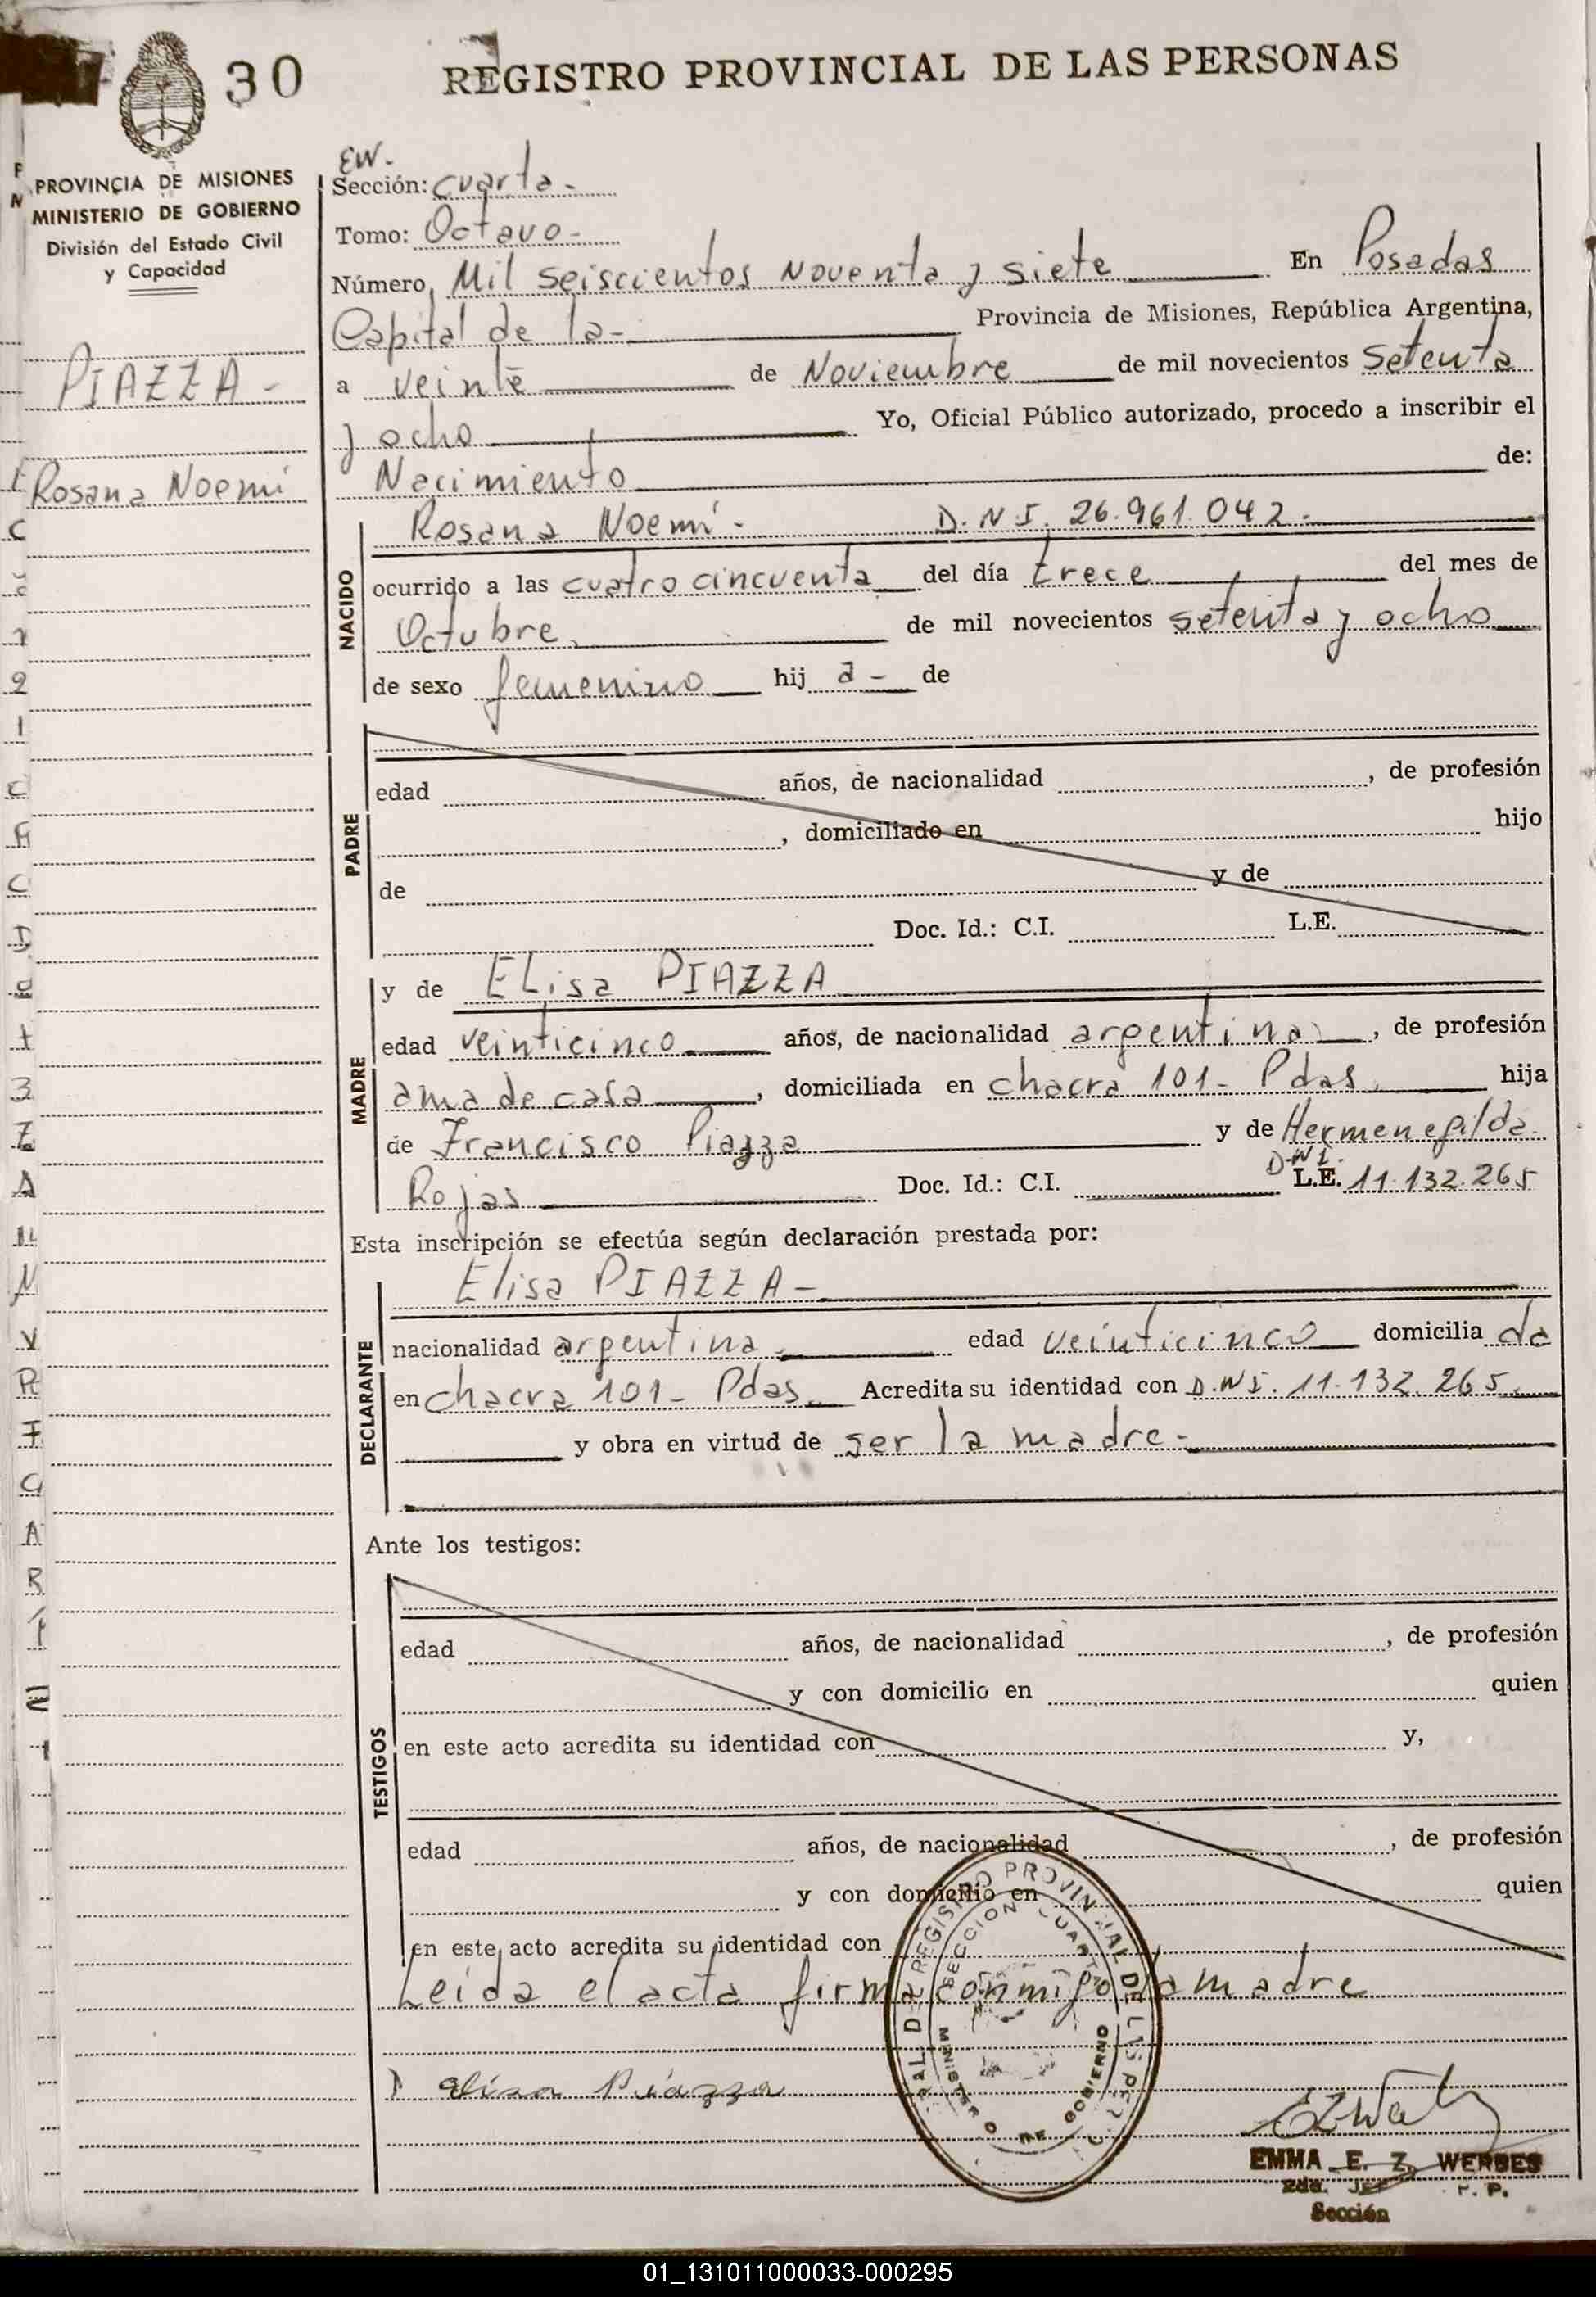 30
REGISTRO PROVINCIAL DE LAS PERSONAS
PROVINCIA DE MISIONES
MINISTERIO DE GOBIERNO
División del Estado Civil
y Capacidad
PIAZZA -
Rosana Noemí
EW.
Sección: Cuarta -
Tomo: Octavo -
Número, Mil seiscientos noventa y siete En Posadas
Capital de la - Provincia de Misiones, República Argentina,
a veinte de Noviembre de mil novecientos setenta
y ocho Yo, Oficial Público autorizado, procedo a inscribir el
Nacimiento de:
NACIDO
Rosana Noemí - D.N.I. 26.961.042.-
ocurrido a las cuatro cincuenta del día trece del mes de
Octubre de mil novecientos setenta y ocho
de sexo femenino hij a - de
PADRE
edad años, de nacionalidad , de profesión
, domiciliado en hijo
de y de
Doc. Id.: C.I. L.E.
MADRE
y de ELisa PIAZZA
edad veinticinco años, de nacionalidad argentina , de profesión
ama de casa , domiciliada en chacra 101 - Pdas. hija
de Francisco Piazza y de Hermenegilda
D.N.I.
Rojas Doc. Id.: C.I. L.E. 11.132.265
Esta inscripción se efectúa según declaración prestada por:
DECLARANTE
Elisa PIAZZA -
nacionalidad argentina edad veinticinco domicilia da
en chacra 101 - Pdas. Acredita su identidad con D.N.I. 11.132.265.
y obra en virtud de ser la madre.-
Ante los testigos:
TESTIGOS
edad años, de nacionalidad , de profesión
y con domicilio en quien
en este acto acredita su identidad con y,
edad años, de nacionalidad , de profesión
y con domicilio en quien
en este acto acredita su identidad con
Leída el acta firma conmigo la madre
Elisa Piazza
SECCION CUARTA
MINISTERIO DE GOBIERNO
EMMA E. Z. WERBES
2da. JEF R. P.
Sección
01_131011000033-000295